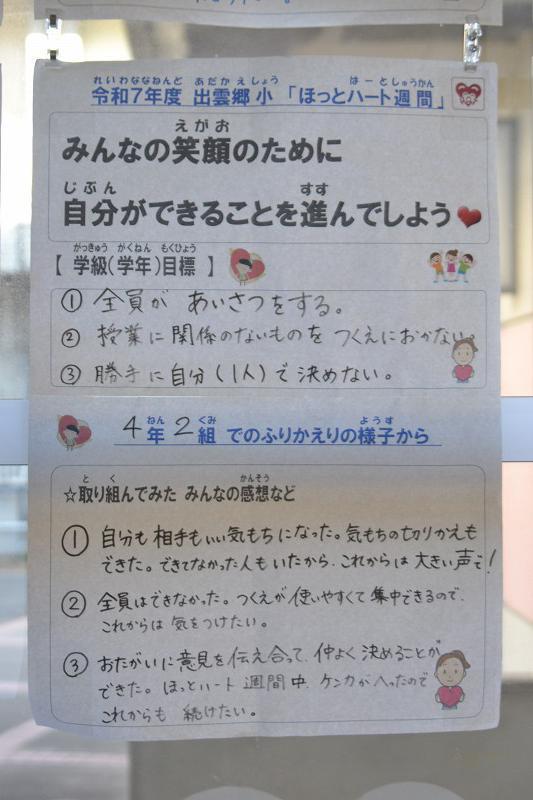 れいわななねんど あだかえしょう はーとしゅうかん
令和7年度 出雲郷小 「ほっとハート週間」
えがお
みんなの笑顔のために
じぶん すす
自分ができることを進んでしよう
がっきゅう がくねん もくひょう
【 学級(学年)目標 】
① 全員が あいさつをする。
② 授業に関係のないものを つくえにおかない。
③ 勝手に自分(1人)で決めない。
ねん くみ ようす
4年2組 でのふりかえりの様子から
と く かんそう
☆取り組んでみた みんなの感想など
① 自分も相手もいい気もちになった。気もちの切りかえも
できた。できてなかった人もいたから、これからは大きい声で!
② 全員はできなかった。つくえが使いやすくて集中できるので、
これからは気をつけたい。
③ おたがいに意見を伝え合って、仲よく決めることが
できた。ほっとハート週間中、ケンカがへったので
これからも 続けたい。